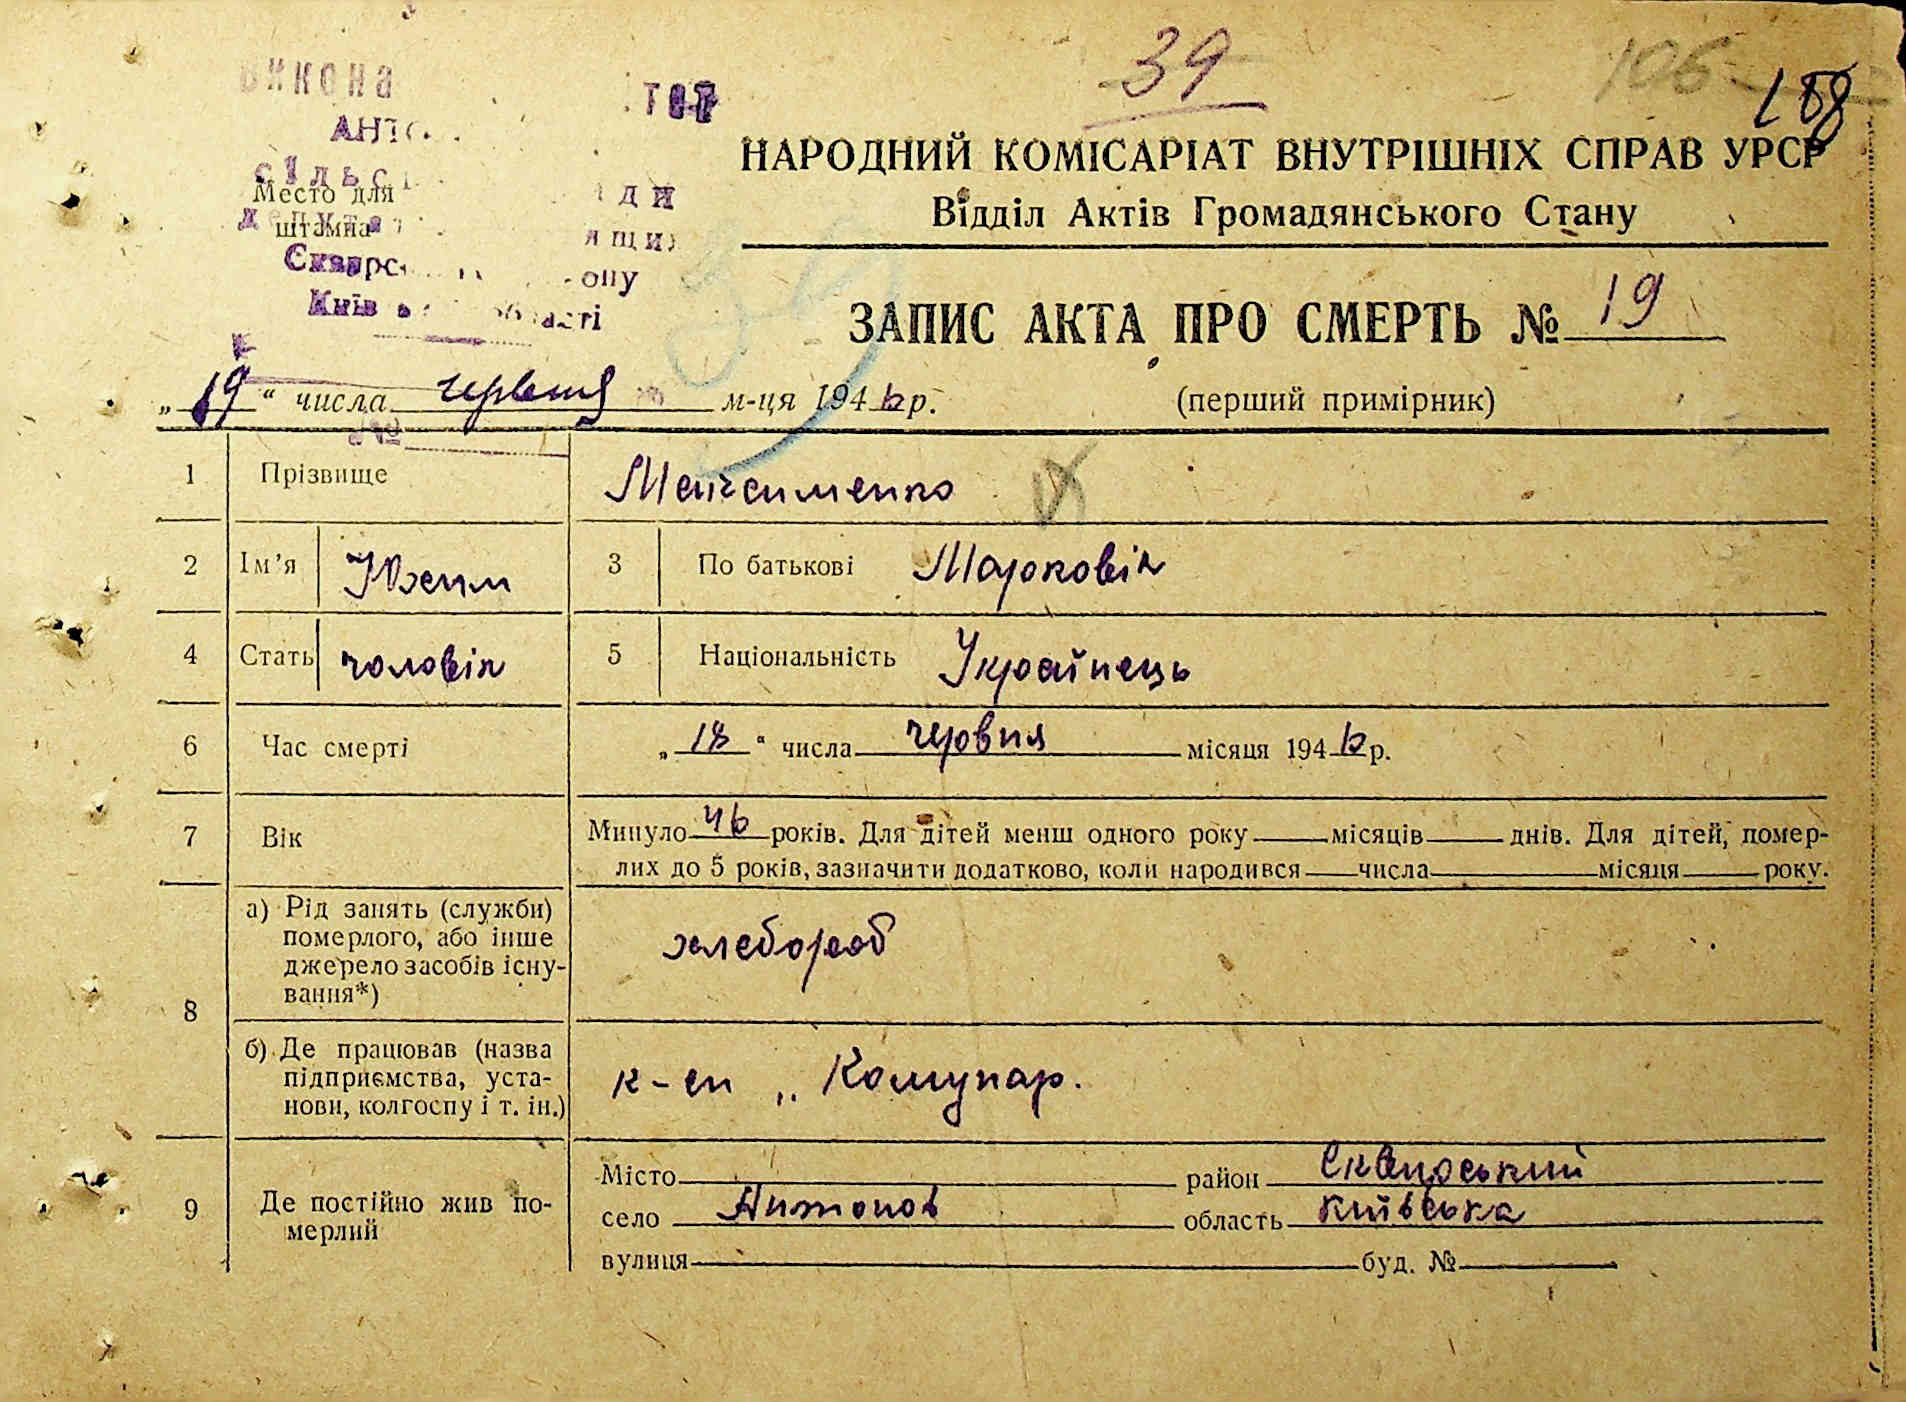 39
106
188
викона тет
АНТО
сільс ди
Место для
штампа
депутат ящих
Сквирс ону
Київ області
НАРОДНИЙ КОМІСАРІАТ ВНУТРІШНІХ СПРАВ УРСР
Відділ Актів Громадянського Стану
39
ЗАПИС АКТА ПРО СМЕРТЬ № 19
„19“ числа червня м-ця 194 р.
(перший примірник)
№
1 Прізвище Максименко
2 Ім'я Юхим 3 По батькові Маркові
4 Стать чоловік 5 Національність Українець
6 Час смерті „18“ числа червня місяця 194 р.
7 Вік Минуло 46 років. Для дітей менш одного року місяців днів. Для дітей, помер-
лих до 5 років, зазначити додатково, коли народився числа місяця року.
8 а) Рід занять (служби)
померлого, або інше
джерело засобів існу-
вання*)
хлебороб
б) Де працював (назва
підприємства, уста-
нови, колгоспу і т. ін.)
к-сп „ Комунар.
9 Де постійно жив по-
мерлий
Місто район Сквирський
село Антонов область київська
вулиця буд. №